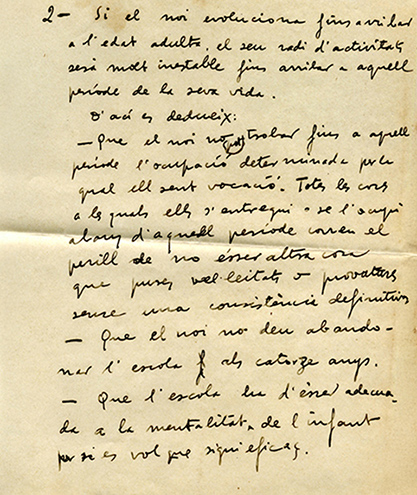 2 — Si el noi evoluciona fins arribar
a l'edat adulta, el seu radi d'activitats
serà molt inestable fins arribar a aquell
període de la seva vida.
D'ací es dedueix:
— Que el noi no pot trobar fins a aquell
període l'ocupació determinada per la
qual ell sent vocació. Totes les coses
a les quals ells s'entregui o se l'ocupi
abans d'aquell període corren el
perill de no ésser altra cosa
que pures vel·leitats o provatures
sense una consistència definitiva
— Que el noi no deu abando-
nar l'escola als catorze anys.
— Que l'escola ha d'ésser adequa-
da a la mentalitat de l'infant
per si es vol que sigui eficaç.